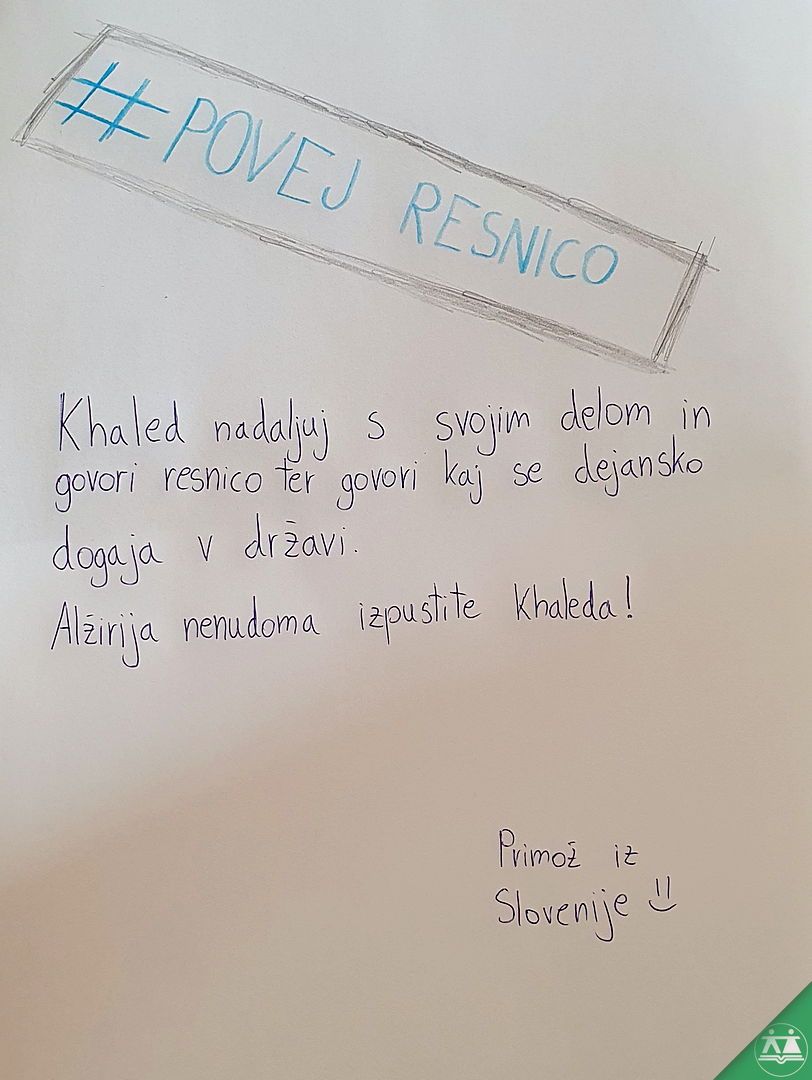 #POVEJ RESNICO
Khaled nadaljuj s svojim delom in
govori resnico ter govori kaj se dejansko
dogaja v državi.
Alžirija nenudoma izpustite Khaleda!
Primož iz
Slovenije